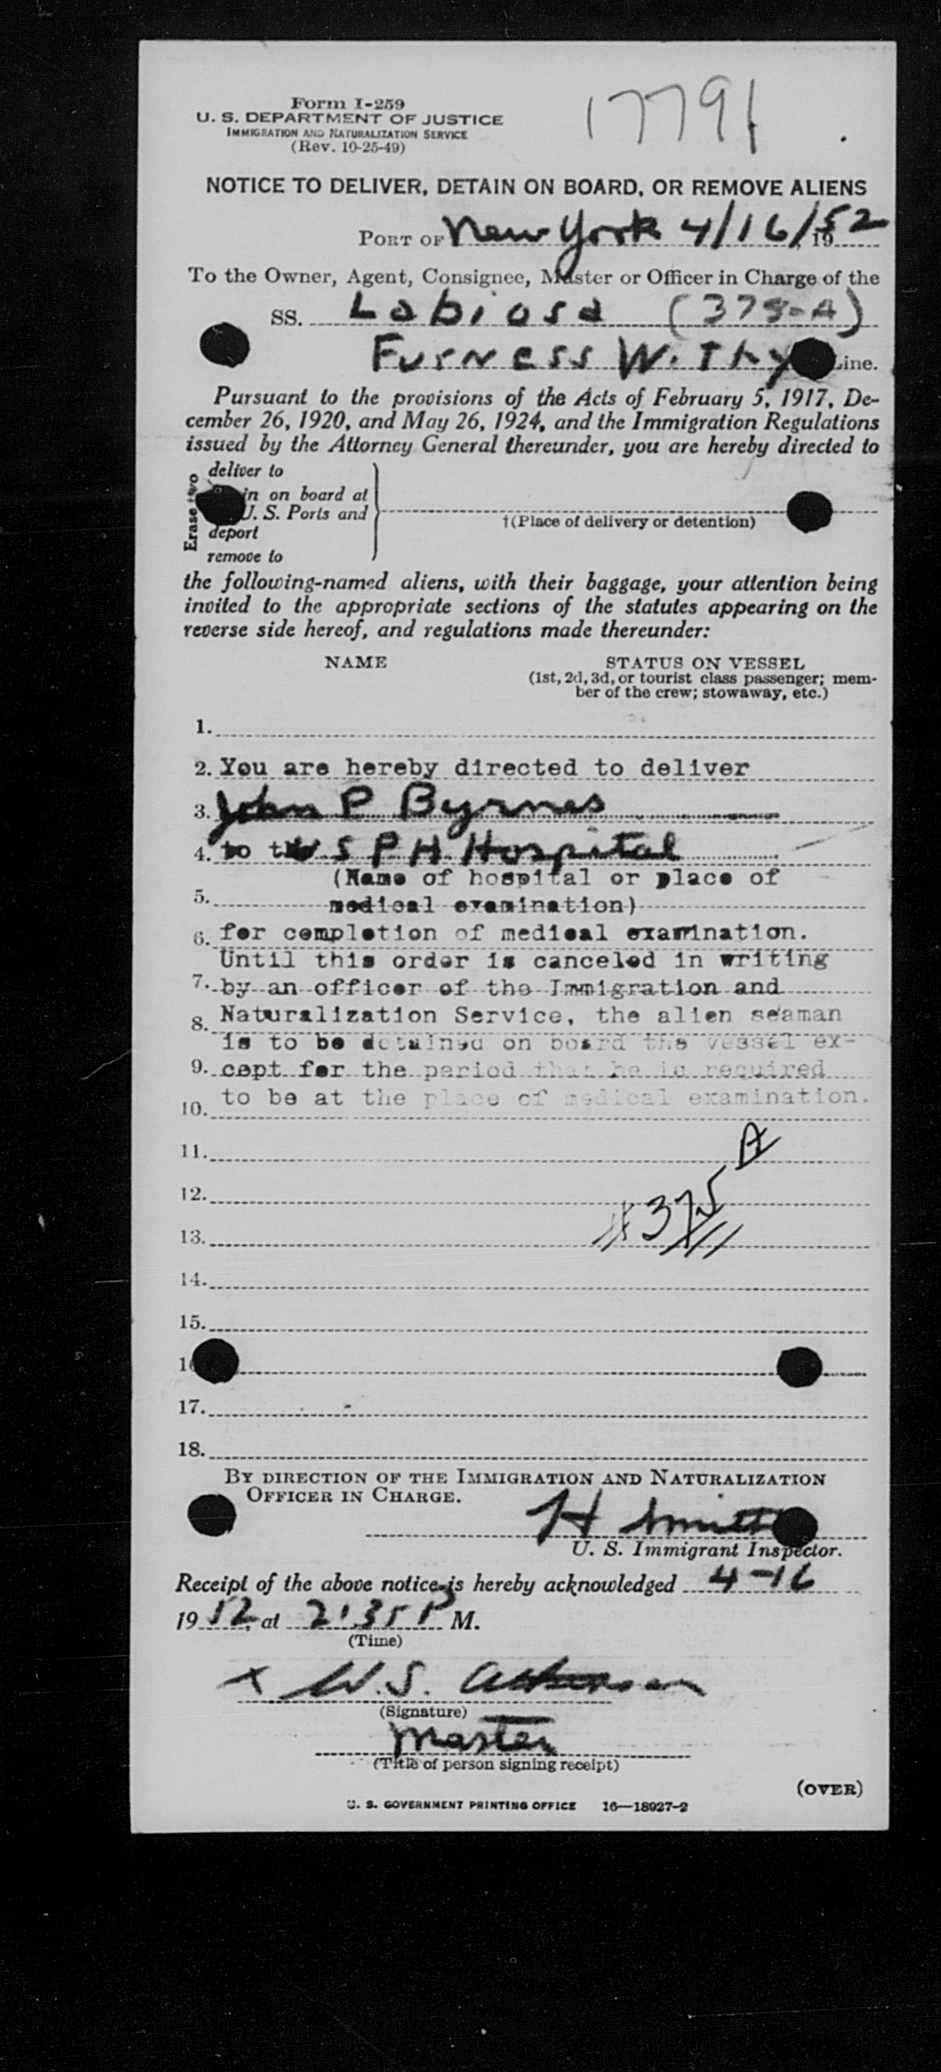 17791
Form I-259
U. S. DEPARTMENT OF JUSTICE
IMMIGRATION AND NATURALIZATION SERVICE
(Rev. 10-25-49)
NOTICE TO DELIVER, DETAIN ON BOARD, OR REMOVE ALIENS
PORT OF New York 4/16/1952
To the Owner, Agent, Consignee, Master or Officer in Charge of the
SS. Labiosa (378-A)
Furness Withy Line.
Pursuant to the provisions of the Acts of February 5, 1917, De-
cember 26, 1920, and May 26, 1924, and the Immigration Regulations
issued by the Attorney General thereunder, you are hereby directed to
Erase two
deliver to
in on board at
U. S. Ports and
deport
remove to
†(Place of delivery or detention)
the following-named aliens, with their baggage, your attention being
invited to the appropriate sections of the statutes appearing on the
reverse side hereof, and regulations made thereunder:
NAME STATUS ON VESSEL
(1st, 2d, 3d, or tourist class passenger; mem-
ber of the crew; stowaway, etc.)
1.
2. You are hereby directed to deliver
3. John P Byrnes
4. to the U.S P H. Hospital
(Name of hospital or place of
5. medical examination)
6. for completion of medical examination.
Until this order is canceled in writing
7. by an officer of the Immigration and
8. Naturalization Service, the alien seaman
is to be detained on board the vessel ex-
9. cept for the period that he is required
to be at the place of medical examination.
10.
11. A
12.
13. #375
14.
15.
16
17.
18.
BY DIRECTION OF THE IMMIGRATION AND NATURALIZATION
OFFICER IN CHARGE.
H Smith
U. S. Immigrant Inspector.
Receipt of the above notice is hereby acknowledged 4-16
1952, at 2:35 P M.
(Time)
x W.S. Atkinson
(Signature)
Master
(Title of person signing receipt)
(OVER)
U. S. GOVERNMENT PRINTING OFFICE 16—18927-2